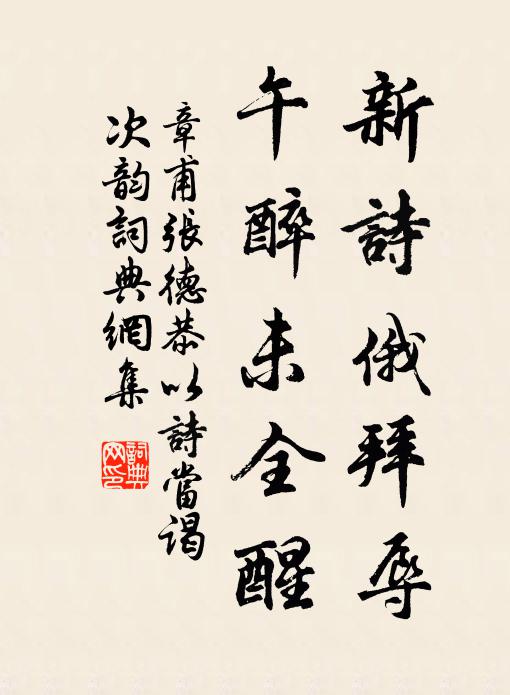 新詩俄拜辱
午醉未全醒
章甫張德恭以詩當謁
次韵詞典網集
詞典網印